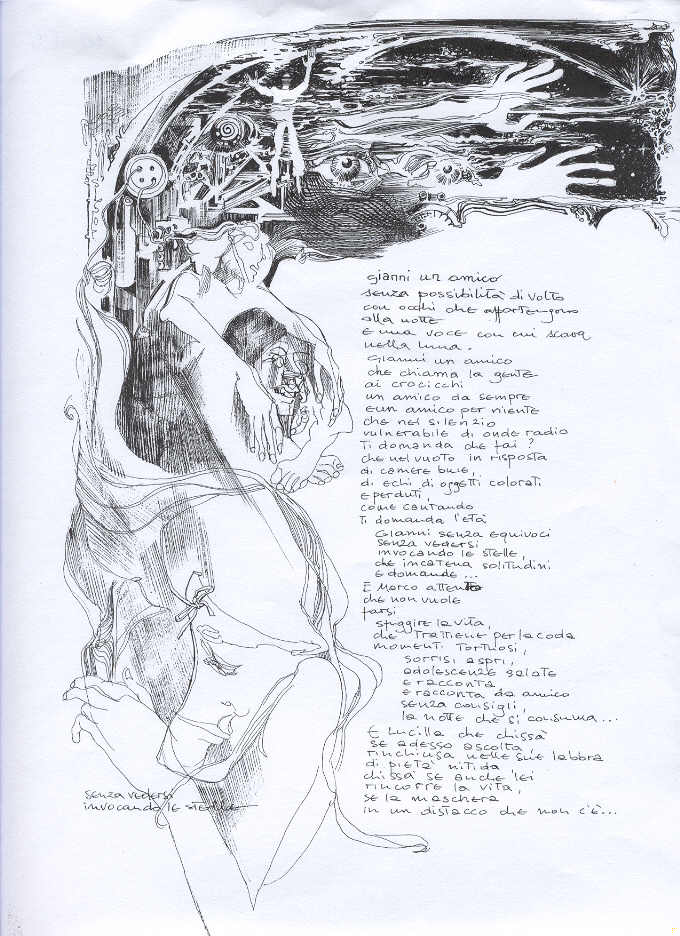 gianni un amico
senza possibilità di volto
con occhi che appartengono
alla notte
e una voce con cui scava
nella luna.
Gianni un amico
che chiama la gente
ai crocicchi
un amico da sempre
e un amico per niente
che nel silenzio
vulnerabile di onde radio
ti domanda che fai?
che nel vuoto in risposta
di camere buie,
di echi di oggetti colorati
e perduti,
come contando
ti domanda l'età
Gianni senza equivoci
senza vedersi
invocando le stelle,
che incatena solitudini
e domande...
È Marco attento
che non vuole
farsi
sfuggire la vita,
che trattiene per la coda
momenti tortuosi,
sorrisi aspri,
adolescenze salate
e racconta
e racconta da amico
senza consigli,
la notte che si consuma...
È Lucilla che chissà
se adesso ascolta,
rinchiusa nelle sue labbra
di pietà nitida
chissà se anche lei
rincorre la vita,
se la maschera
in un distacco che non c'è...
senza vedersi
invocando le stelle